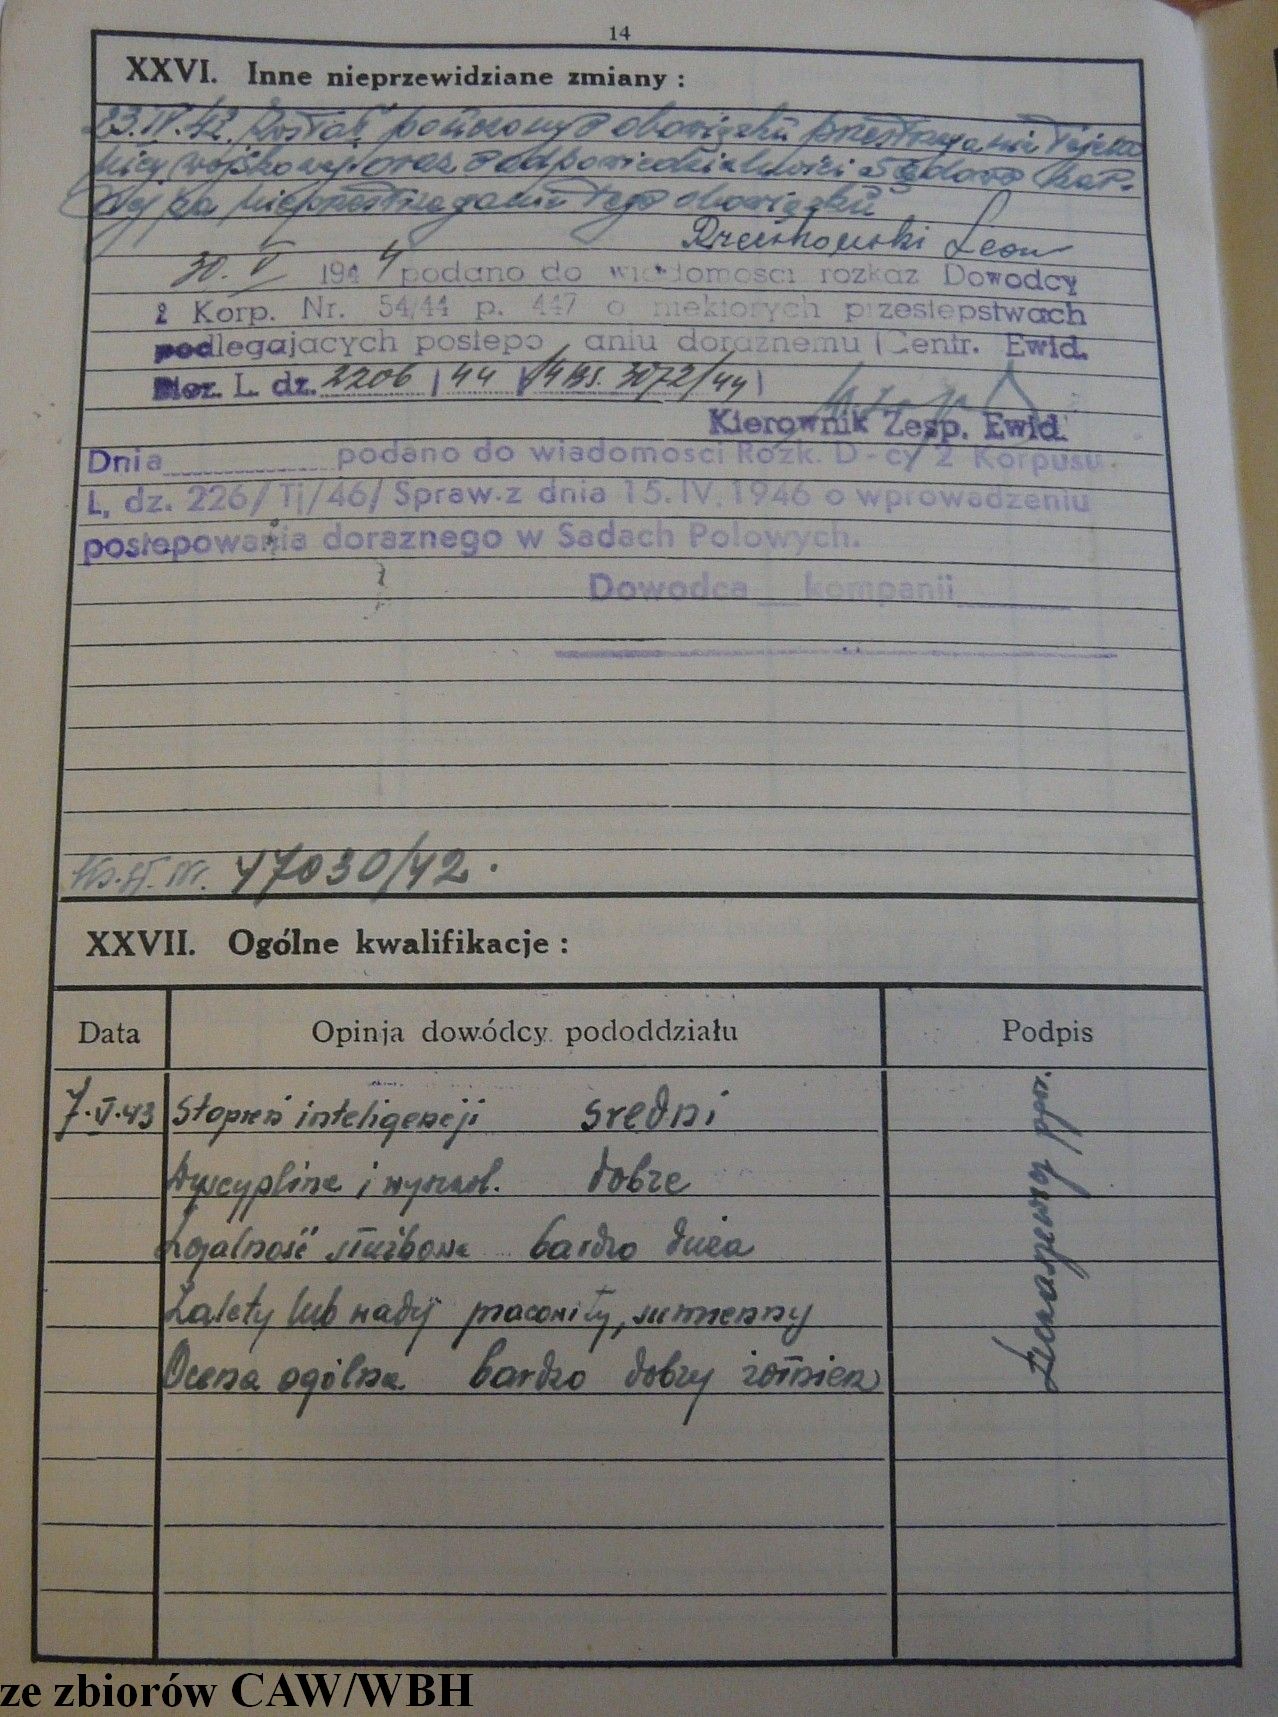 14
XXVI. Inne nieprzewidziane zmiany :
23.IV.42. Został pouczony o obowiązku przestrzegania tajem
nicy wojskowej oraz o odpowiedzialności sądowo kar-
nej za nieprzestrzeganie tego obowiązku
Leon
30. V 1944 podano do wiadomosci rozkaz Dowodcy
2 Korp. Nr. 54/44 p. 447 o niektorych przestepstwach
podlegajacych postepo aniu doraznemu (Centr. Ewid.
L. dz. 2206 / 44 3072/44 )
Kierownik Zesp. Ewid.
Dnia podano do wiadomosci Rozk. D-cy 2 Korpusu
L. dz. 226/Tj/46/Spraw. z dnia 15.IV.1946 o wprowadzeniu
postepowania doraznego w Sadach Polowych.
Dowodca kompanii
47030/42.
XXVII. Ogólne kwalifikacje :
Data Opinja dowódcy pododdziału Podpis
7.V.43 Stopień inteligencji średni
Dyscyplina i wyszkol. dobre
Lojalność służbowa bardzo duża
Zalety lub wady pracowity, sumienny
Ocena ogólna bardzo dobry żołnierz
ppor.
ze zbiorów CAW/WBH